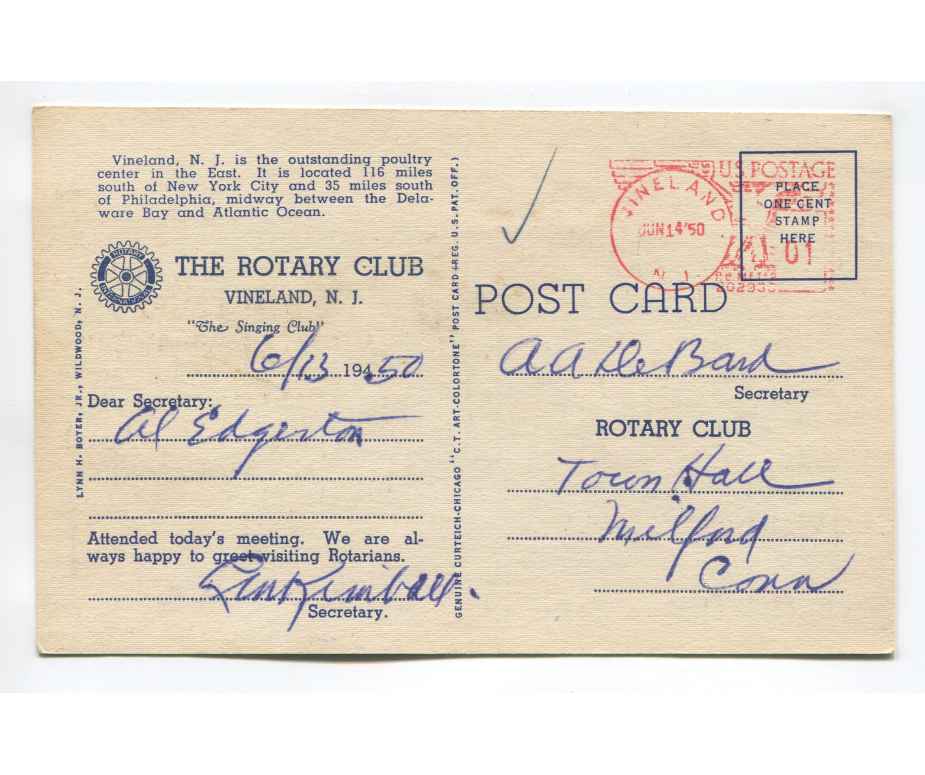 Vineland, N. J. is the outstanding poultry
center in the East. It is located 116 miles
south of New York City and 35 miles south
of Philadelphia, midway between the Dela-
ware Bay and Atlantic Ocean.
ROTARY
INTERNATIONAL
THE ROTARY CLUB
VINELAND, N. J.
"The Singing Club"
6/13 194 50
Dear Secretary:
Al Edgerton
Attended today's meeting. We are al-
ways happy to greet visiting Rotarians.
Len Kimball.
Secretary.
LYNN H. BOYER, JR., WILDWOOD, N. J.
GENUINE CURTEICH-CHICAGO "C.T. ART-COLORTONE" POST CARD (REG. U.S. PAT. OFF.)
VINELAND
JUN 14 '50
N. J.
U.S. POSTAGE
01
PLACE
ONE CENT
STAMP
HERE
POST CARD
A A De Bard
Secretary
ROTARY CLUB
Town Hall
Milford
Conn